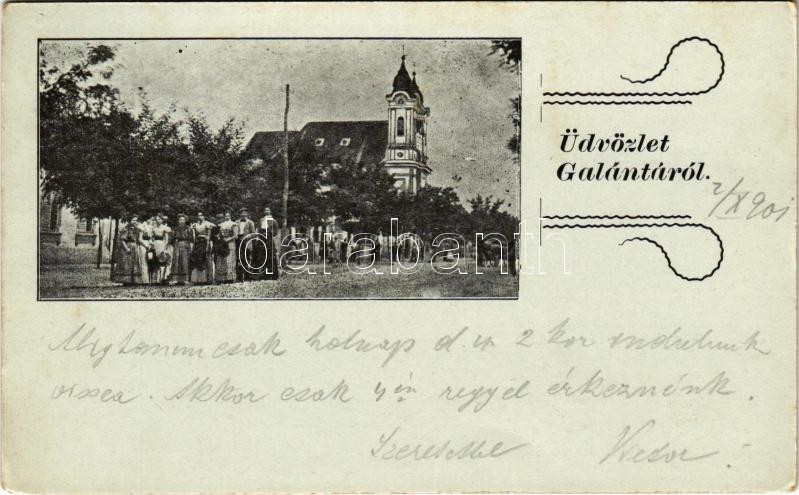 Üdvözlet
Galántáról.
2/X 901
darabanth
csak holnap d. u. 2 kor indulunk
vissza. Akkor csak 4 én reggel érkeznénk.
Szeretettel